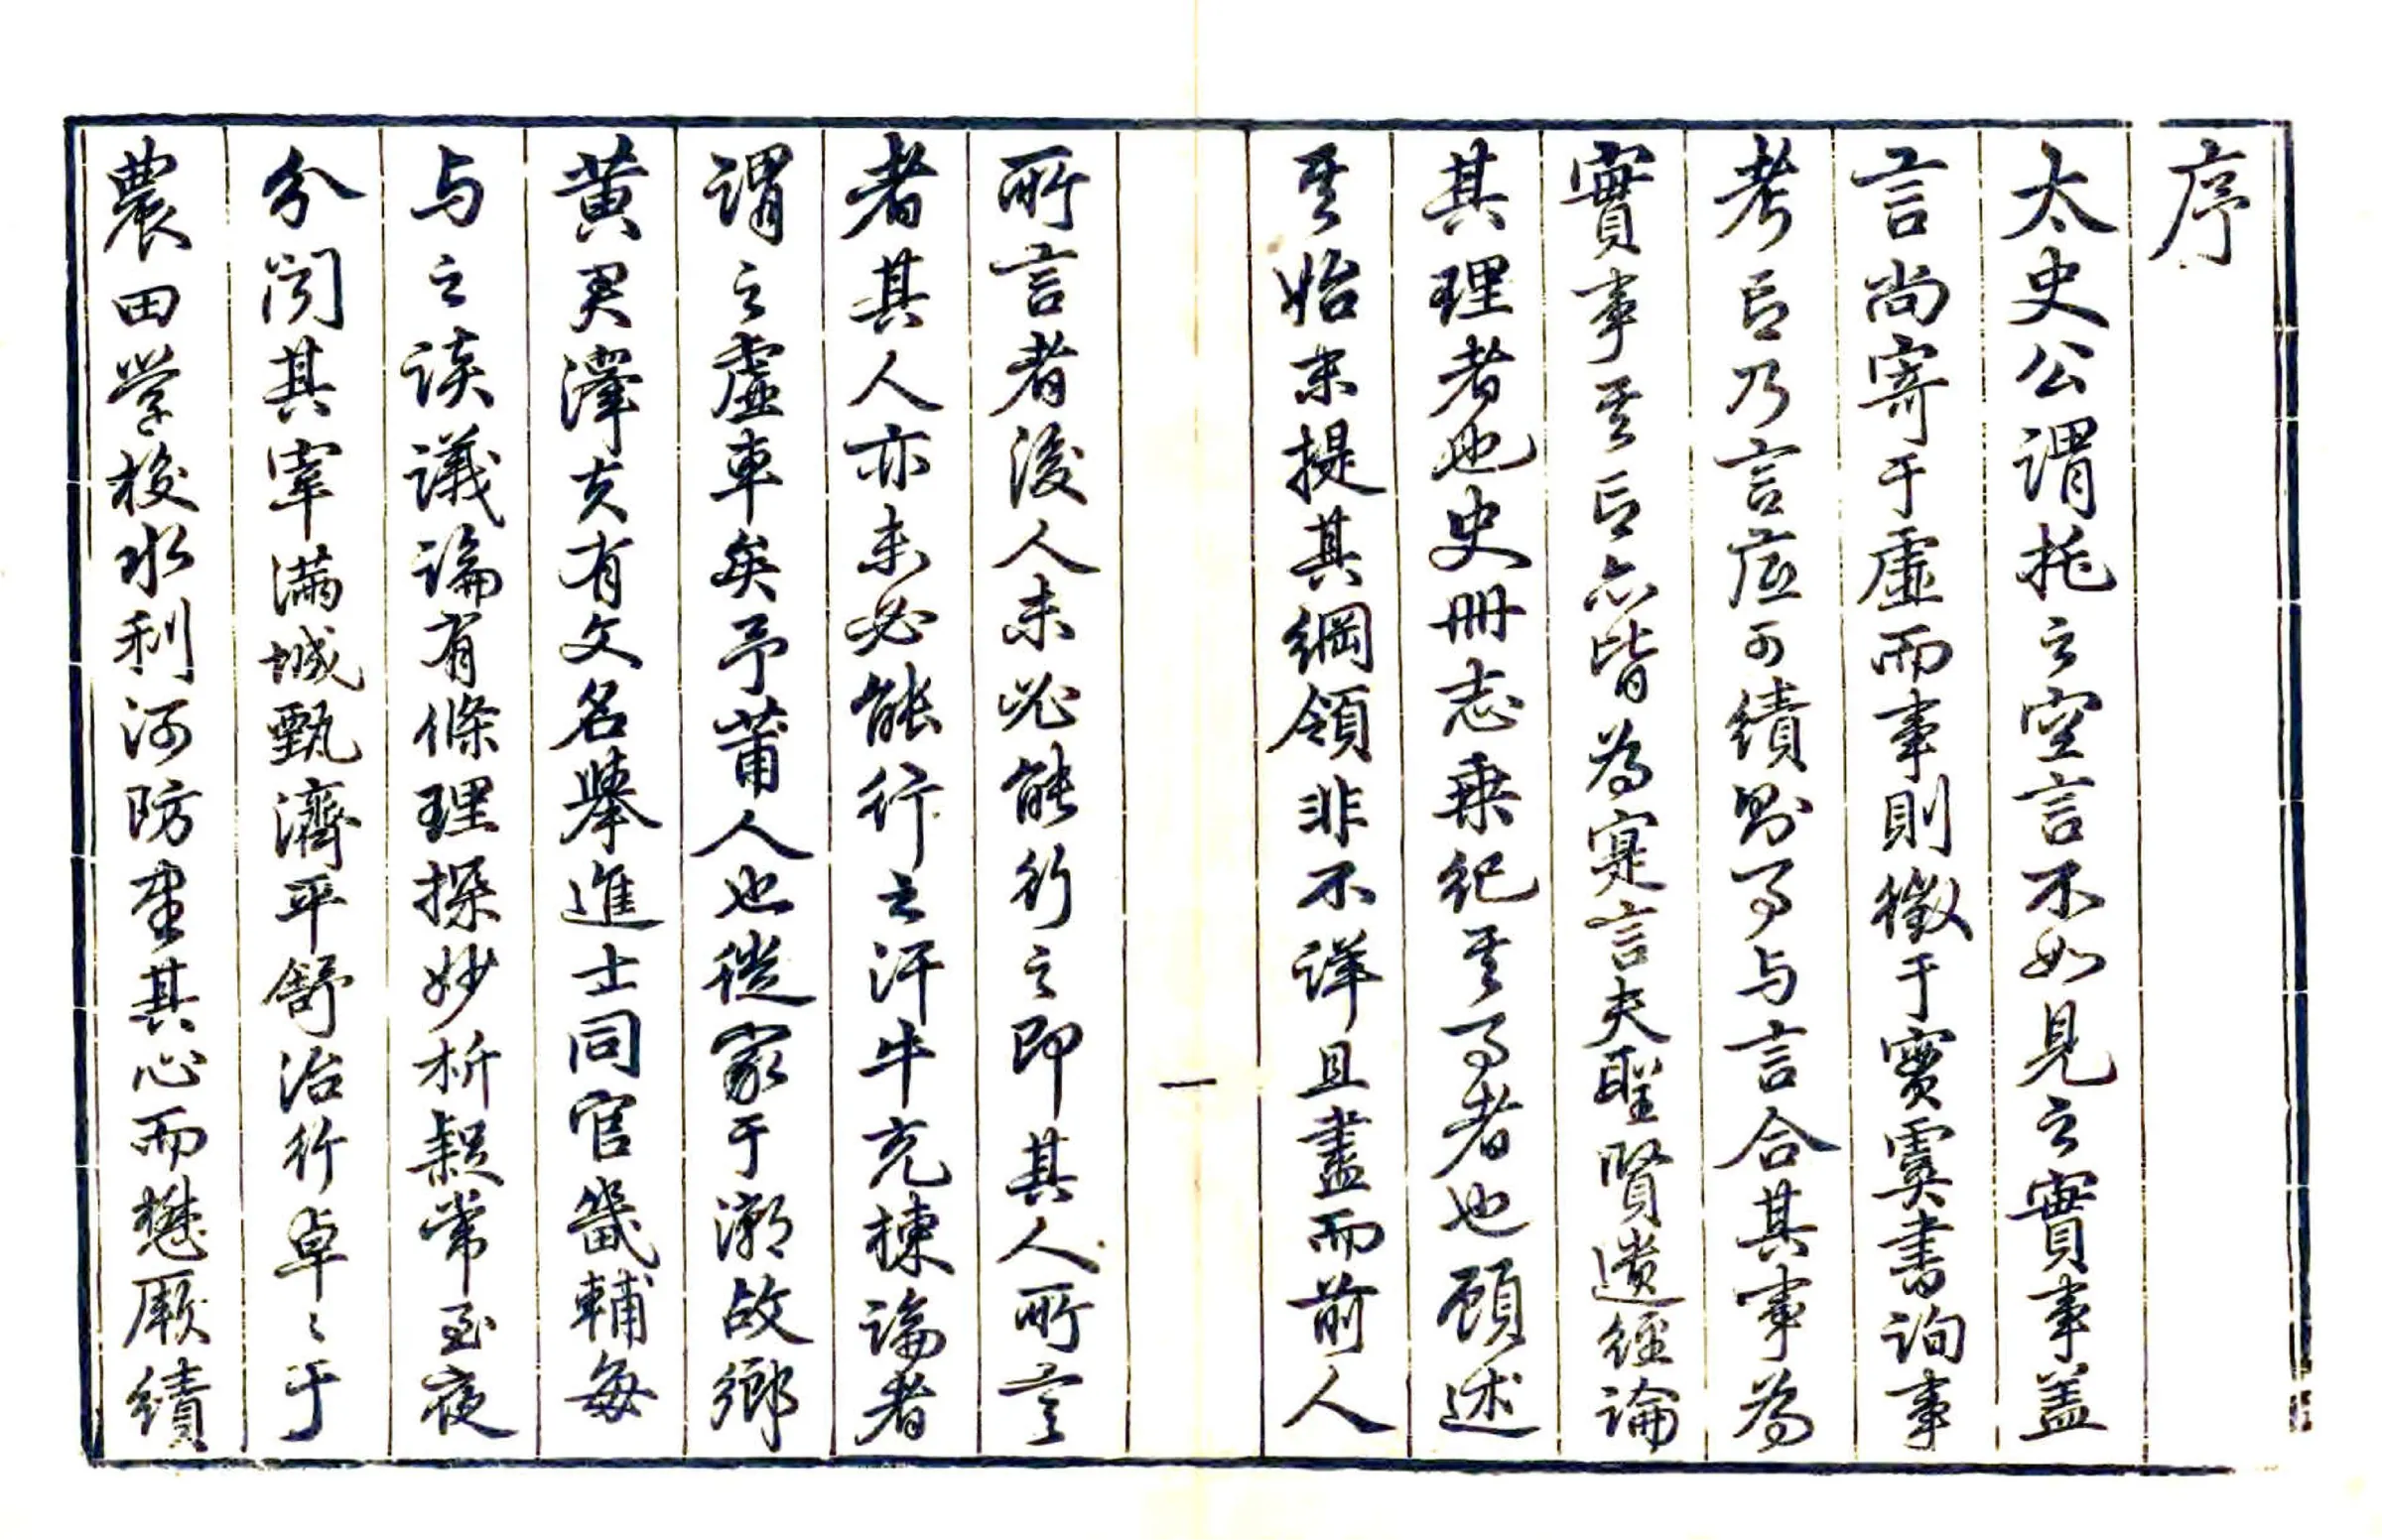 序
太史公謂托之空言不如見之實事盖
言尚寄于虛而事則徵于實虞書詢事
考言乃言底可績則事与言合其事為
實事其言亦皆為寔言夫聖賢遺經論
其理者也史冊志乗紀其事者也顧述
其始末提其綱領非不詳且盡而前人
一
所言者後人未必能行之即其人所言
者其人亦未必能行之汗牛充棟論者
謂之虛車矣予莆人也徙家于潮故鄉
黃君澤夫有文名舉進士同官畿輔每
与之談議論有條理探妙析疑常至夜
分閱其宰滿城甄濟平舒治行卓〻于
農田学校水利河防盡其心而懋厥績